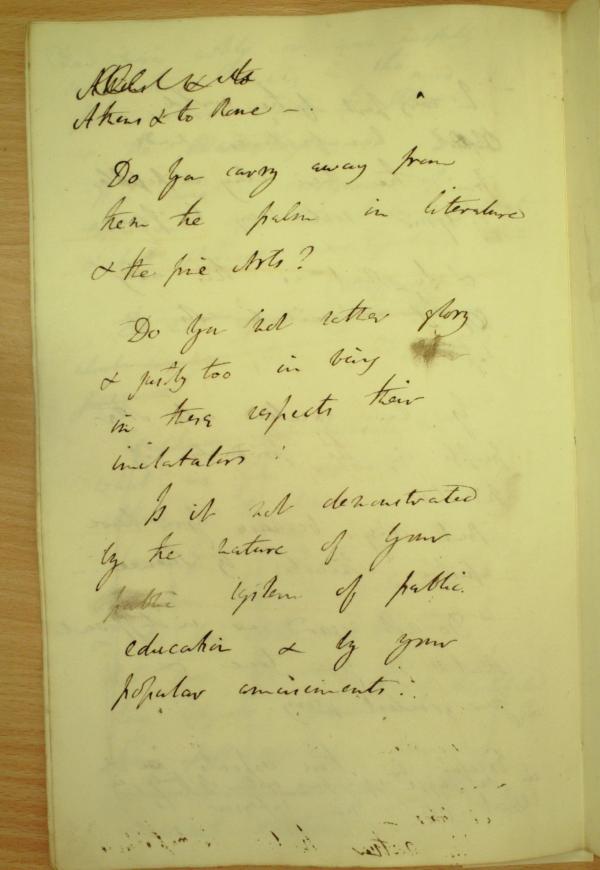 Athens & to Rome —.
Do you carry away from
them the palm in literature
& the fine Arts?
Do you not rather glory
& justly too in being
in these respects their
imitators?
Is it not demonstrated
by the nature of your
public system of public
education & by your
popular amusements?